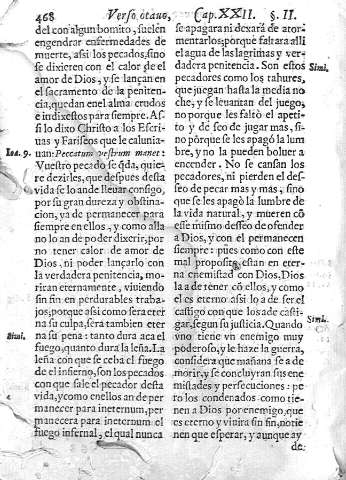 468 Verso otauo, Cap. XXII. §. II.
del con algun bomito, suelẽ
engendrar enfermedades de
muerte, assi los pecados, sino
se dixieren con el calor de el
amor de Dios, y se lançan en
el sacramento de la peniten-
cia, quedan en el alma crudos
e indixestos para siempre. As-
si lo dixo Christo a los Escri-
uas y Fariseos que le calunia-
Ioa. 9. uan: Peccatum vestrum manet:
Vuestro pecado se q̃da, quie-
re dezirles, que despues desta
vida se lo ande lleuar consigo,
por su gran dureza y obstina-
cion, ya de permanecer para
siempre en ellos, y como alla
no lo an de poder dixerir, por
no tener calor de amor de
Dios, ni poder lançarlo con
la verdadera penitencia, mo-
riran eternamente, viuiendo
sin fin en perdurables traba-
jos; porque assi como sera eter
na su culpa, sera tambien eter
Simi. na su pena: tanto dura aca el
fuego, quanto dura la leña. La
leña con que se ceba el fuego
de el infierno, son los pecados
con que sale el pecador desta
vida, y como en ellos an de per
manecer para ineternum, per
manecera para ineternum el
fuego infernal, el qual nunca
se apagara ni dexará de ator-
mentarlos; porque faltara alli
el agua de las lagrimas y ver-
dadera penitencia. Son estos Simi.
pecadores como los tahures,
que juegan hasta la media no
che, y se leuantan del juego,
no porque les faltó el apeti-
to y deseo de jugar mas, si-
no pórque se les apagó la lum
bre, y no la pueden boluer a
encender. No se cansan los
pecadores, ni pierden el des-
seo de pecar mas y mas; sino
que se les apagó la lumbre de
la vida natural, y mueren cõ
esse mismo desseo de ofender
a Dios, y con el permanecen
siempre: pues como con este
mal proposito, estan en eter-
na enemistad con Dios, Dios
la a de tener cõ ellos, y como
el es eterno assi lo a de ser el
castigo con que los a de casti-
gar, segun su justicia. Quando Simi.
vno tiene vn enemigo muy
poderoso, y le haze la guerra,
considera que mañana se a de
morir, y se concluyran sus ene
mistades y persecuciones: pe-
ro los condenados como tie-
nen a Dios por enemigo, que
es eterno y viuira sin fin, no tie
nen que esperar, y aunque ay
de